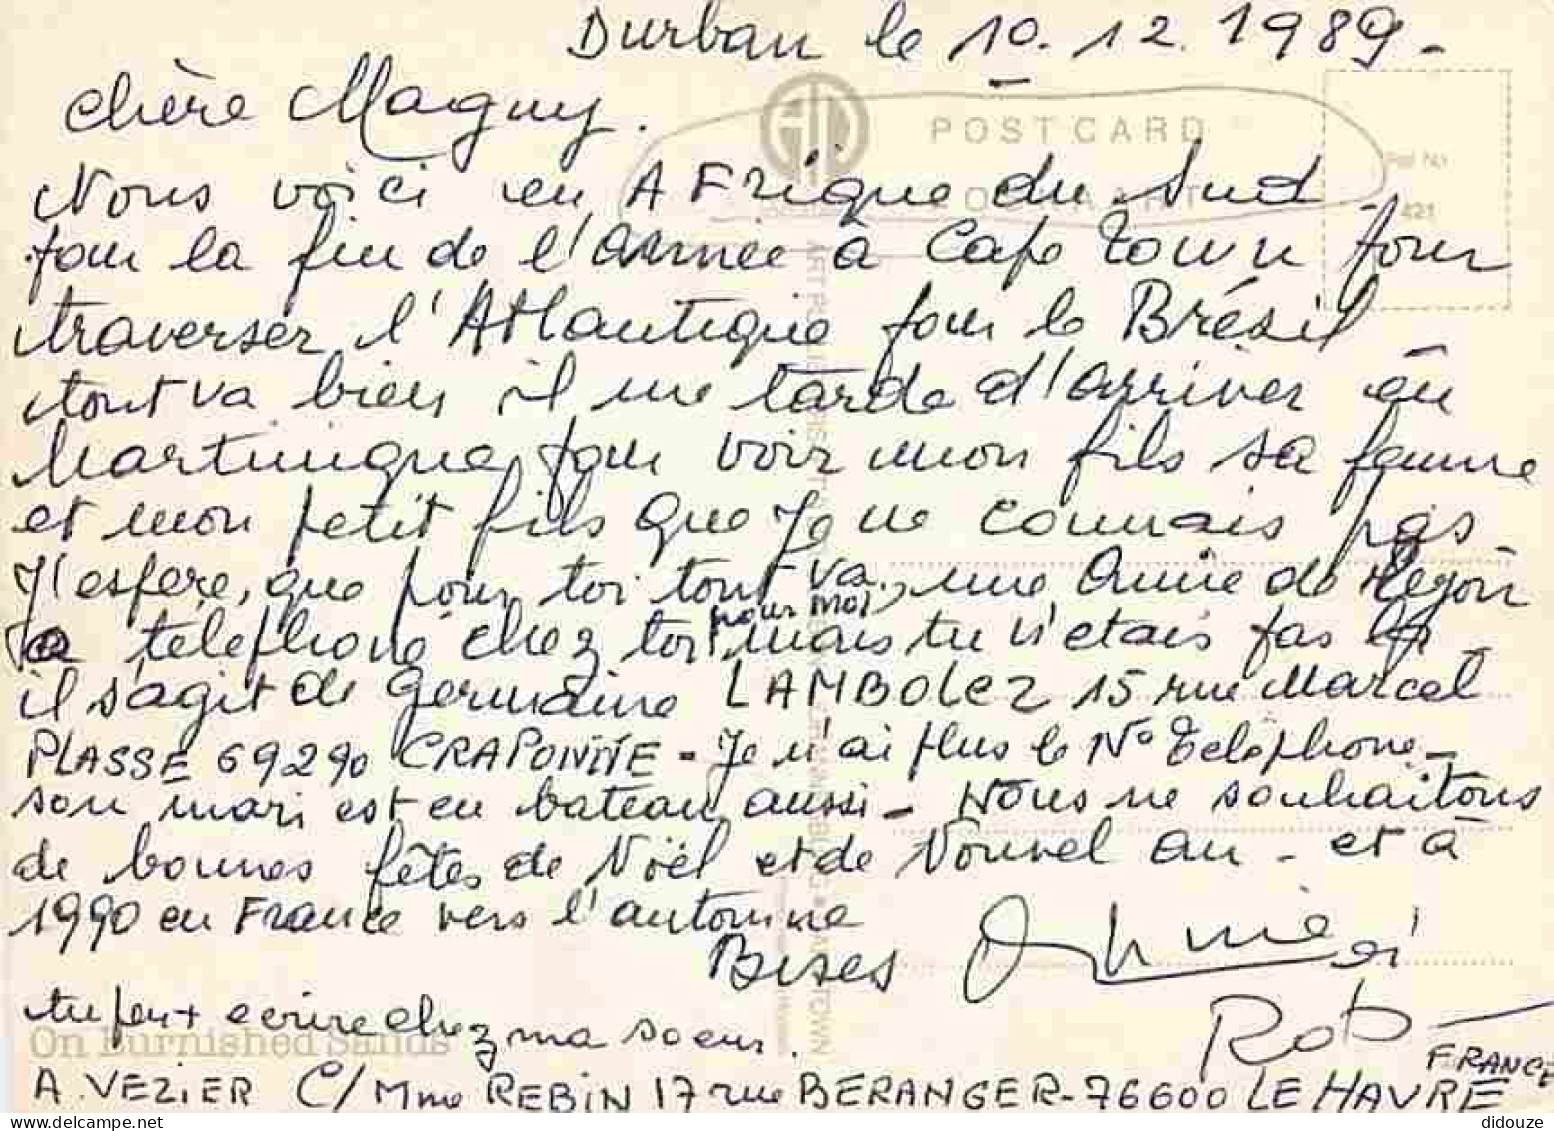 Durban le 10.12.1989-
chère Maguy.
POST CARD
Nous voici en AFrique du Sud
421
pour la fin de l'année à Cape Town pour
traverser l'Atlantique pour le Brésil
tout va bien il me tarde d'arriver en
Martinique, pour voir mon fils sa femme
et mon petit fils que je ne connais pas
J'espère, que pour toi tout va, une amie de Lyon
a téléphoné chez toi pour moi mais tu n'étais pas là
il s'agit de Germaine LAMBOLEZ 15 rue Marcel
PLASSE 69290 CRAPONNE - Je n'ai plus le N° téléphone-
son mari est en bateau aussi - Nous ne souhaitons
de bonnes fêtes de Noël et de Nouvel an - et à
1990 en France vers l'automne
Bises
Rob
tu peux écrire chez ma soeur.
On Burnished Sands
FRANCE
A. VEZIER C/ Mme REBIN 17 rue BERANGER-76600 LE HAVRE
didouze